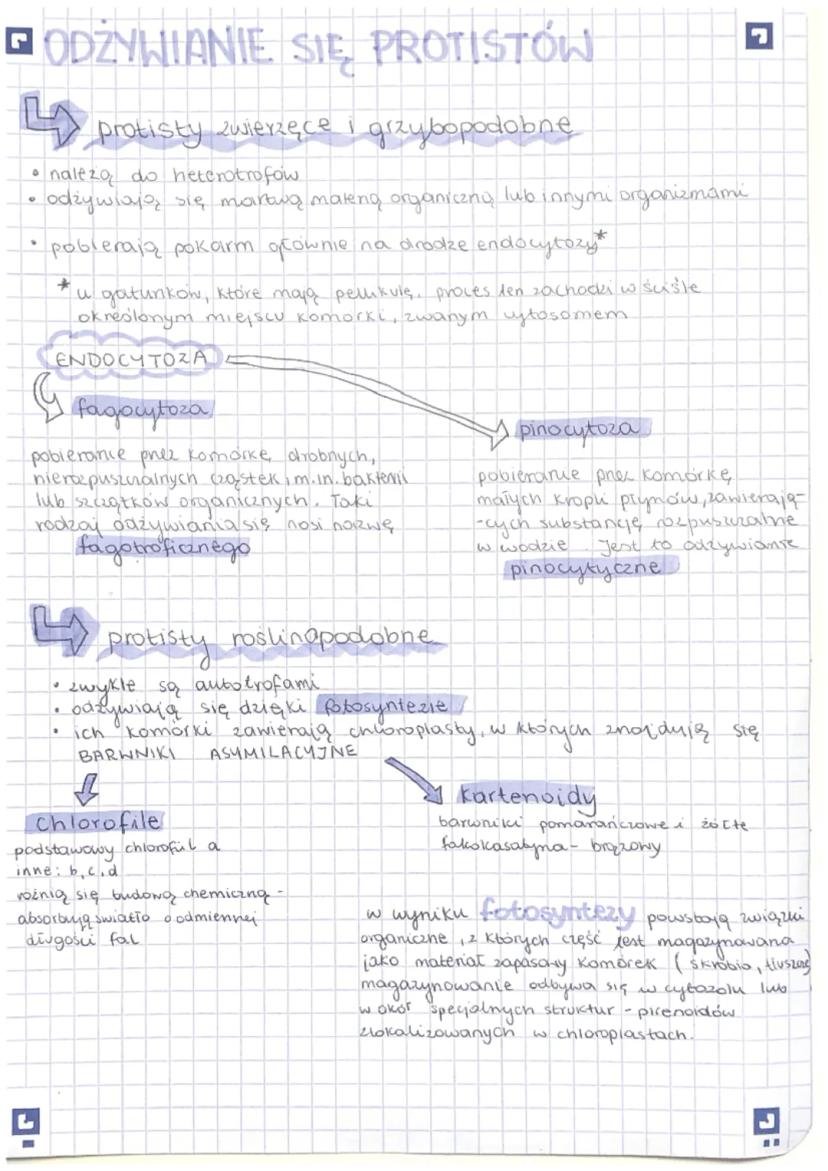 ODŻYWIANIE SIĘ PROTISTÓW
protisty zwierzęce i grzybopodobne
• należą do heterotrofów
• odżywiają się martwą materią organiczną lub innymi organizmami
• pobierają pokarm głównie na drodze endocytozy*
* u gatunków, które mają pellikulę, proces ten zachodzi w ściśle
określonym miejscu komórki, zwanym cytosomem
ENDOCYTOZA
fagocytoza
pobieranie przez komórkę drobnych,
nierozpuszczalnych cząstek, m.in. bakterii
lub szczątków organicznych. Taki
rodzaj odżywiania się nosi nazwę
fagotroficznego
pinocytoza
pobieranie przez komórkę
małych kropli płynów, zawierają-
-cych substancję rozpuszczalne
w wodzie. Jest to odżywianie
pinocytyczne
protisty roślinopodobne
• zwykle są autotrofami
• odżywiają się dzięki fotosyntezie
• ich komórki zawierają chloroplasty, w których znajdują się
BARWNIKI ASYMILACYJNE
chlorofile
podstawowy chlorofil a
inne: b, c, d
rożnią się budową chemiczną -
absorbują światło o odmiennej
długości fal
kartenoidy
barwniki pomarańczowe i żółte
- brązowy
w wyniku fotosyntezy powstają związki
organiczne, z których część jest magazynowana
jako materiał zapasowy komórek (skrobia, tłuszcz)
magazynowanie odbywa się w cytozolu lub
wokół specjalnych struktur - pirenoidów
zlokalizowanych w chloroplastach.